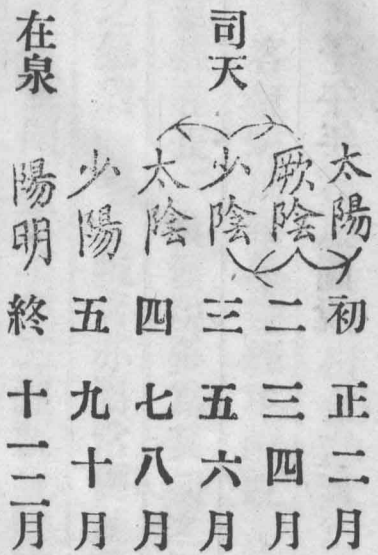 太陽 初 正二月
厥陰 二 三四月
司天 少陰 三 五六月
太陰 四 七八月
少陽 五 九十月
在泉 陽明 終 十一二月